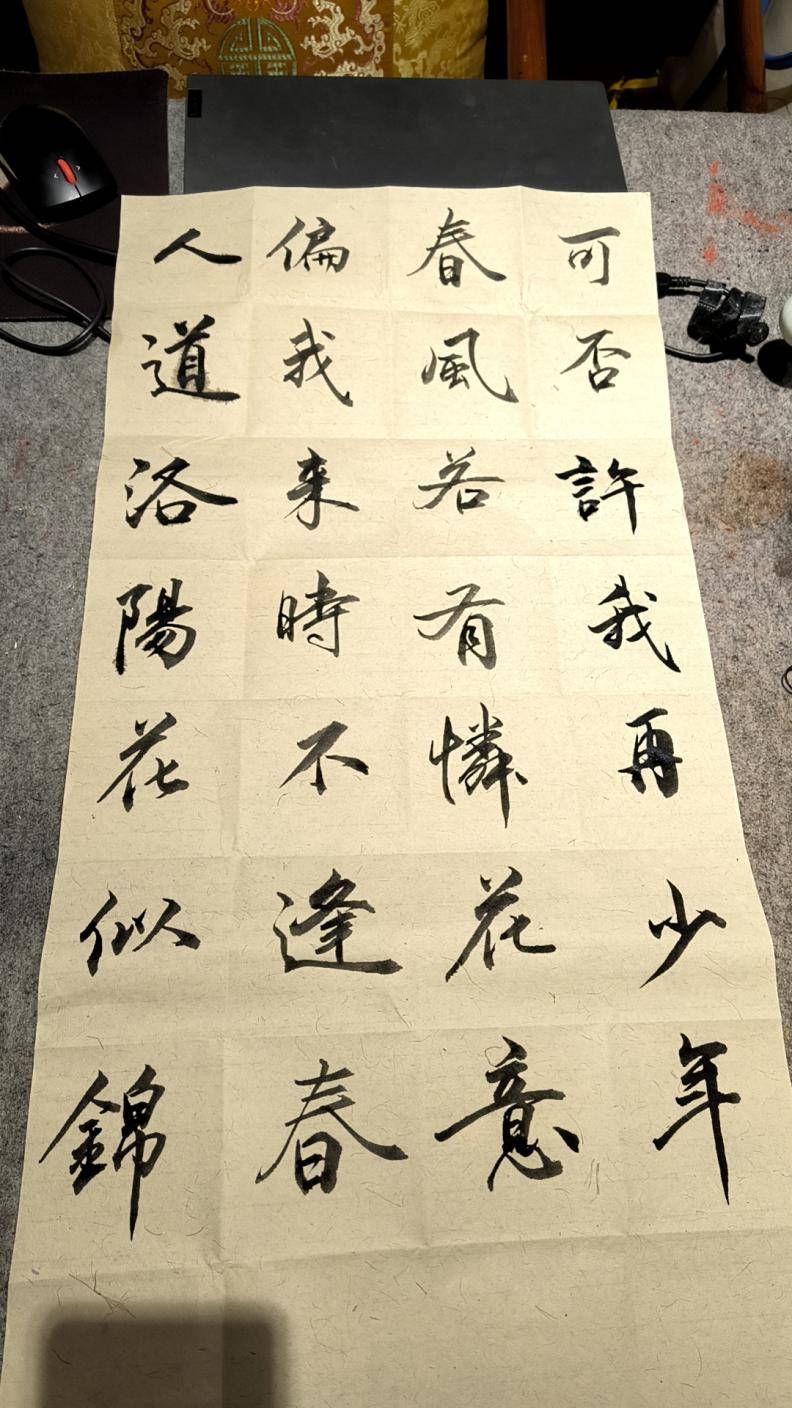 人道洛陽花似錦
偏我来時不逢春
春風若有憐花意
可否許我再少年